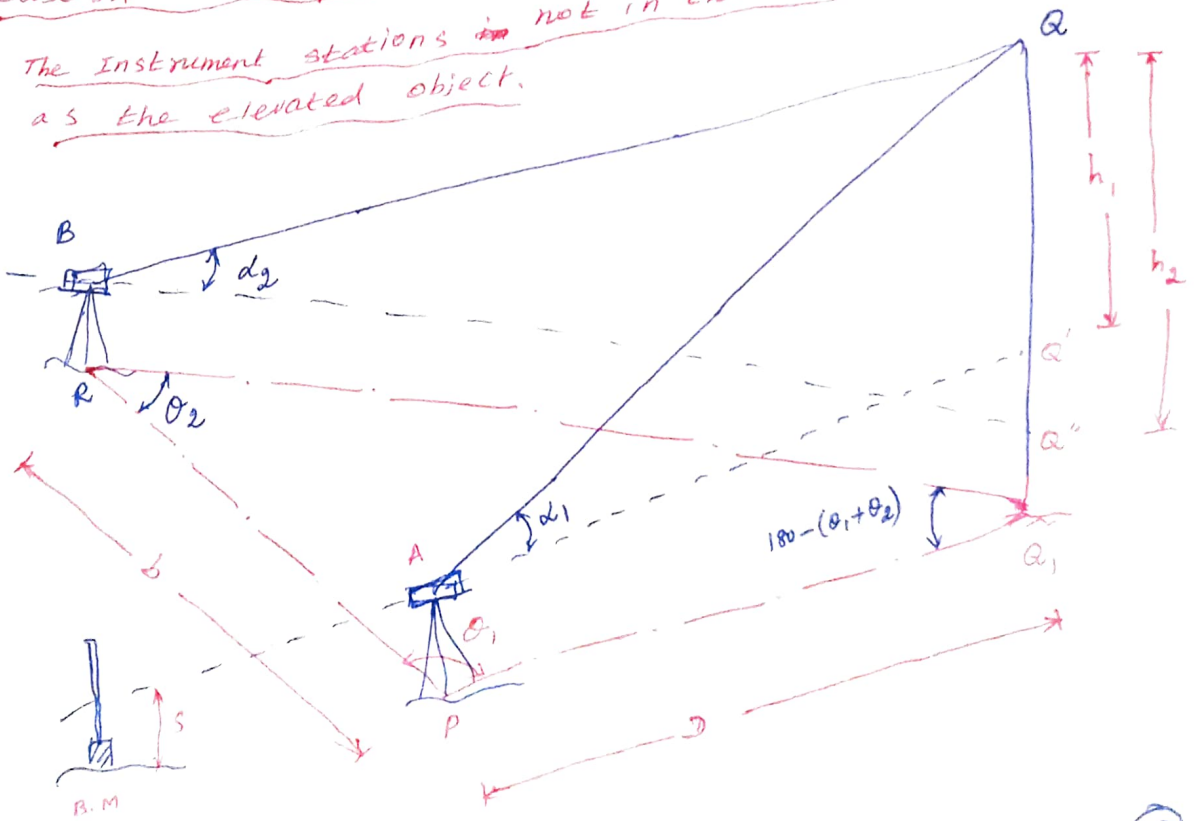 The Instrument stations not in
as the elevated object.
Q
h₁
h₂
B
α₂
Q'
R
θ₂
Q"
α₁
180-(θ₁+θ₂)
A
Q₁
b
θ₁
S
P
D
B.M